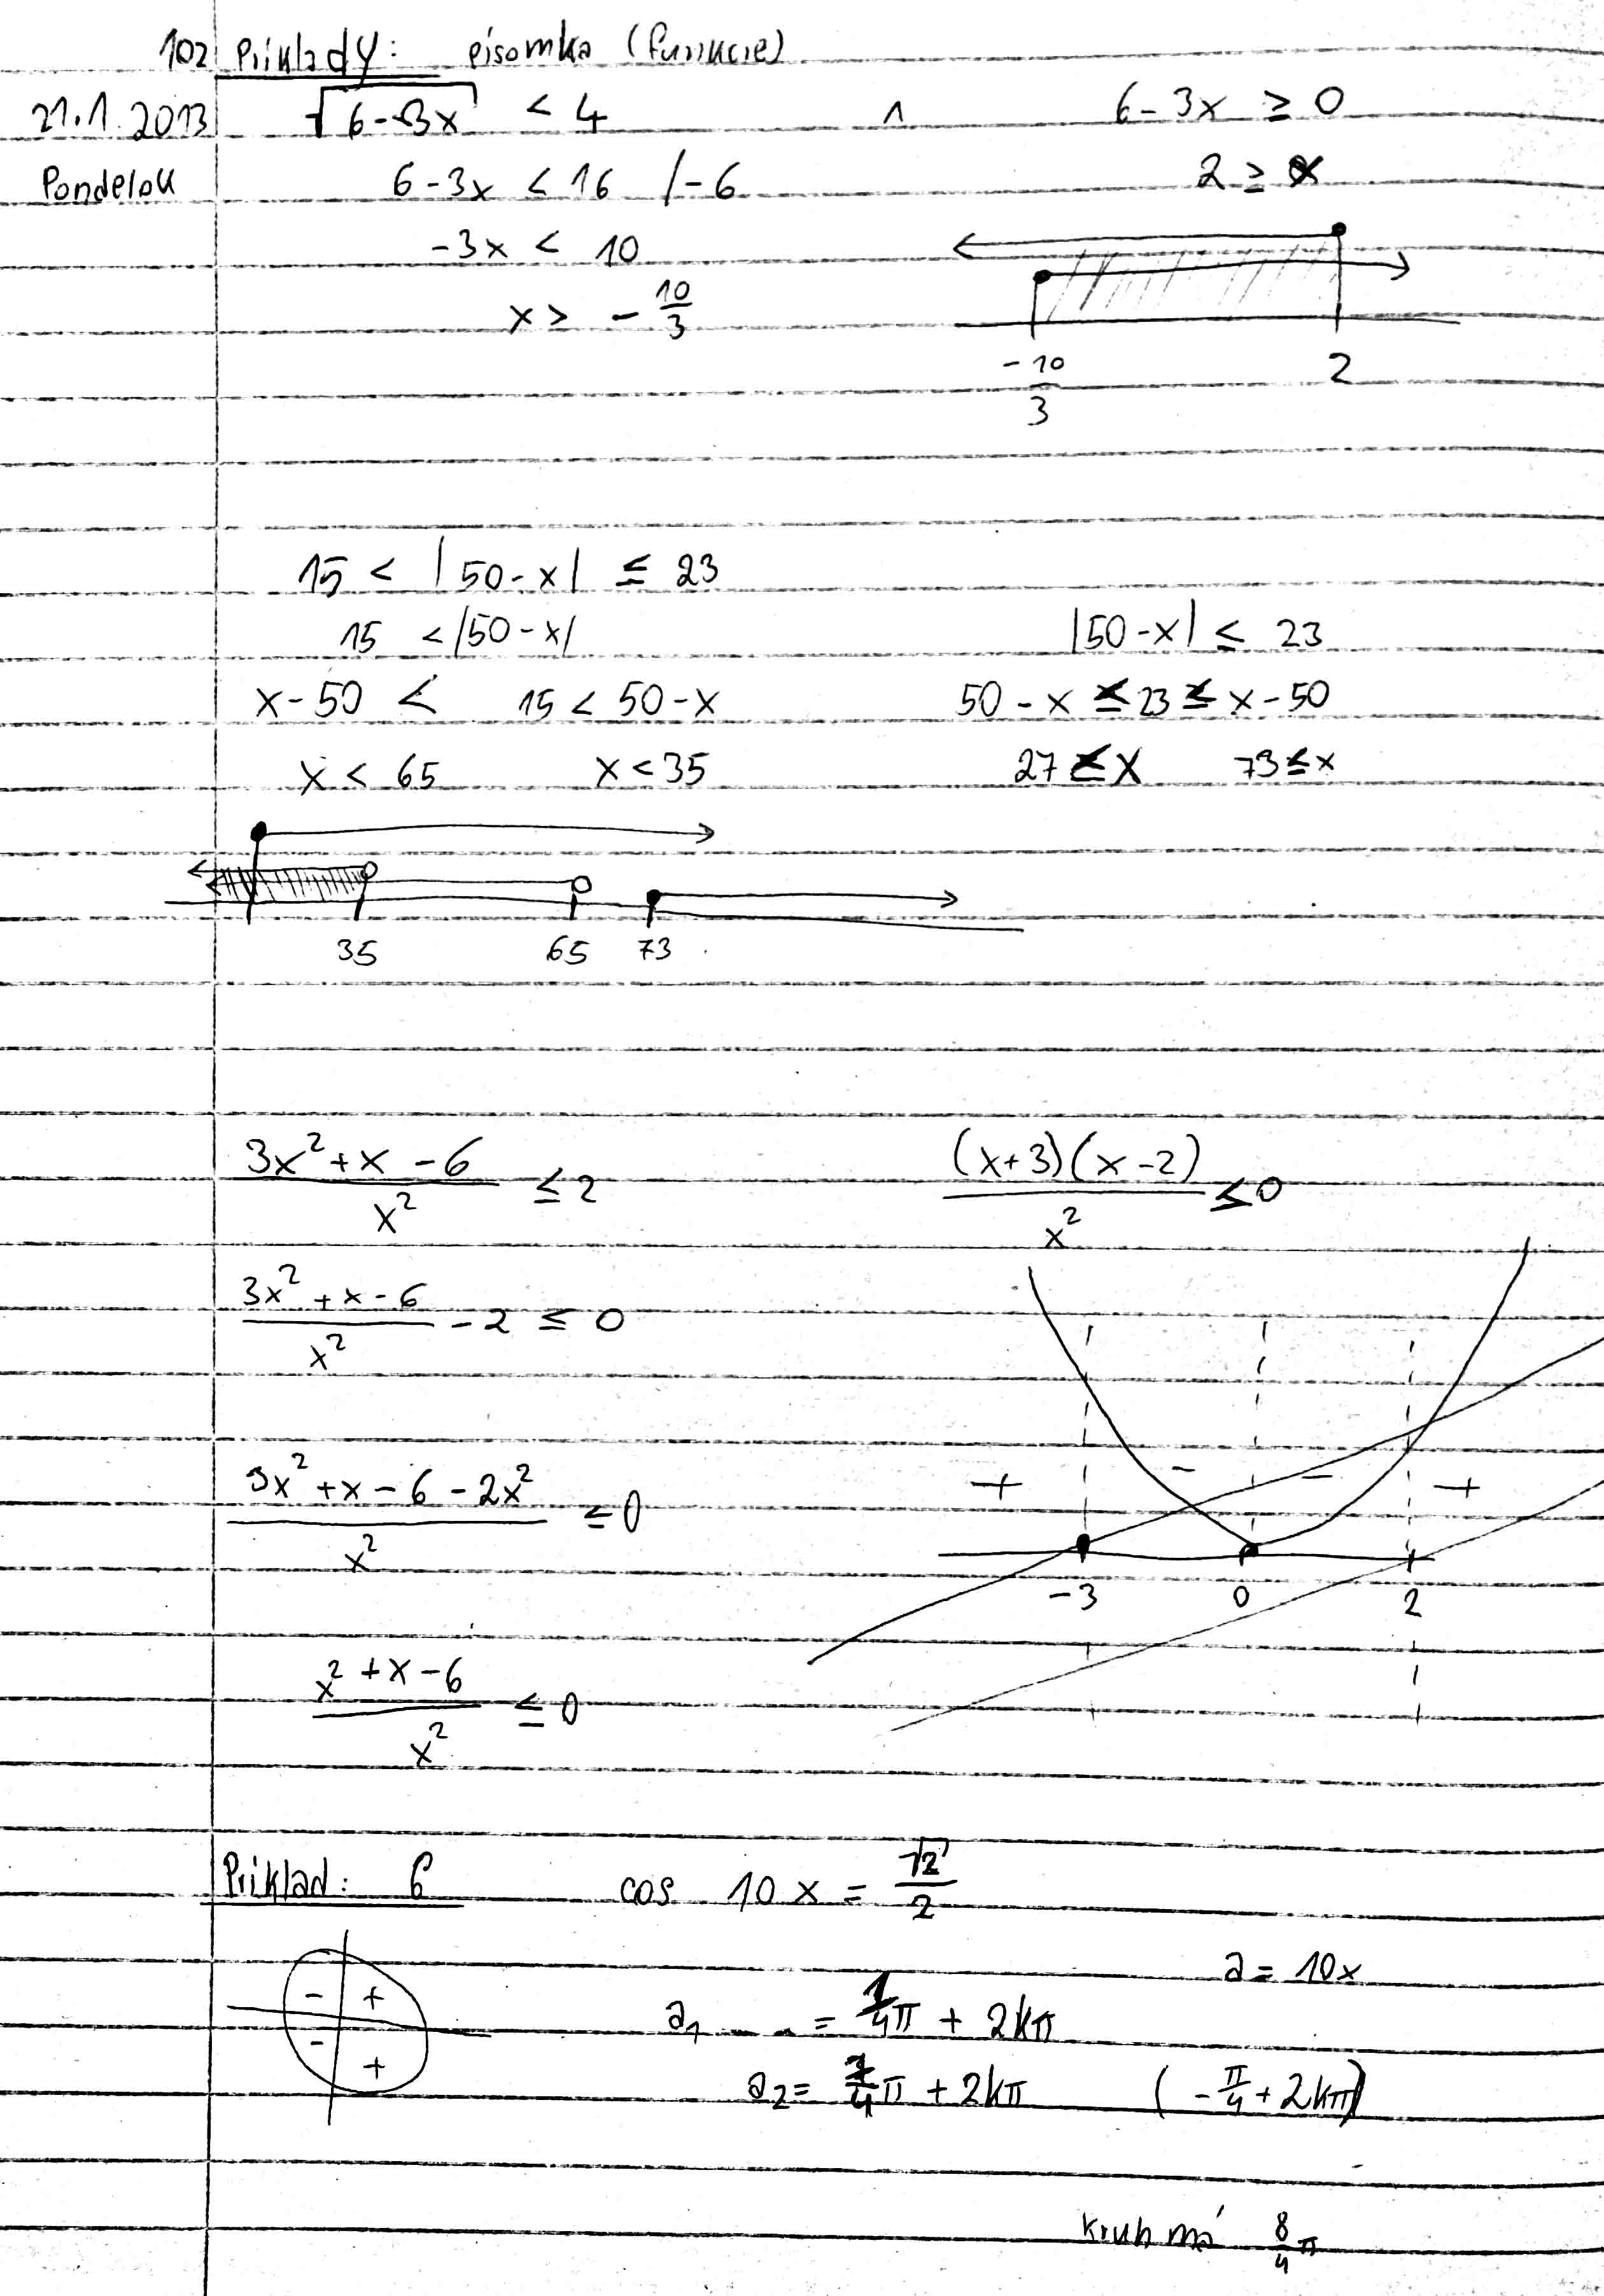 102 Príklady: písomka (funkcie)
21.1.2013 √(6-3x) < 4 ∧ 6-3x ≥ 0
Pondelok 6-3x < 16 /-6 2 ≥ x
-3x < 10
x > -10/3
-10/3 2
15 < |50-x| ≤ 23
15 < |50-x| |50-x| ≤ 23
x-50 < 15 < 50-x 50-x ≤ 23 ≤ x-50
x < 65 x < 35 27 ≤ x 73 ≤ x
35 65 73
(3x²+x-6)/x² ≤ 2 (x+3)(x-2)/x² ≤ 0
(3x²+x-6)/x² - 2 ≤ 0
+ - - +
(3x²+x-6-2x²)/x² ≤ 0
-3 0 2
(x²+x-6)/x² ≤ 0
Príklad: 6 cos 10x = √2/2
a = 10x
- + a₁ = 1/4π + 2kπ
- + a₂ = 7/4π + 2kπ (-π/4 + 2kπ)
kruh má 8/4π